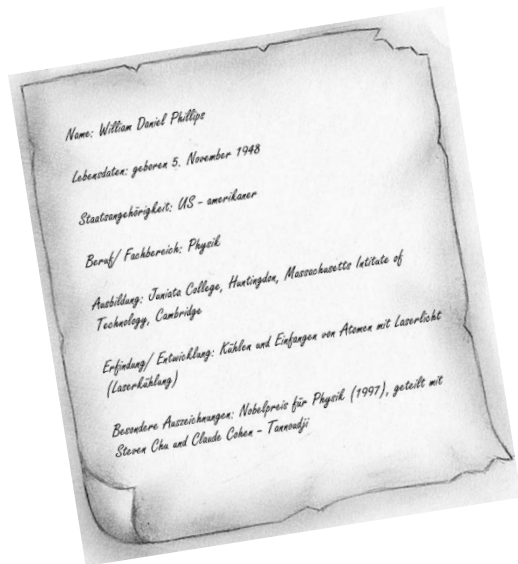 Name: William Daniel Phillips
Lebensdaten: geboren 5. November 1948
Staatsangehörigkeit: US - amerikaner
Beruf/ Fachbereich: Physik
Ausbildung: Juniata College, Huntingdon, Massachusetts Intitute of
Technology, Cambridge
Erfindung/ Entwicklung: Kühlen und Einfangen von Atomen mit Laserlicht
(Laserkühlung)
Besondere Auszeichnungen: Nobelpreis für Physik (1997), geteilt mit
Steven Chu und Claude Cohen - Tannoudji